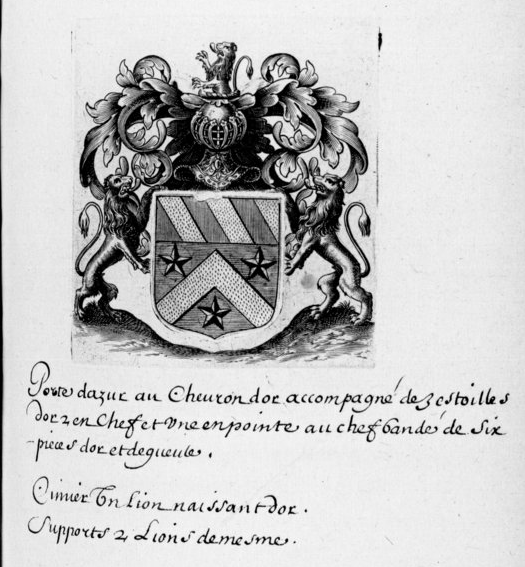 Porte dazur au Cheuron dor accompagné de 3 estoilles
dor 2 en Chef et Vne en pointe au chef bandé de Six
-pieces dor et degueule.
Cimier Vn Lion naissant dor.
Supports 2 Lions demesme.